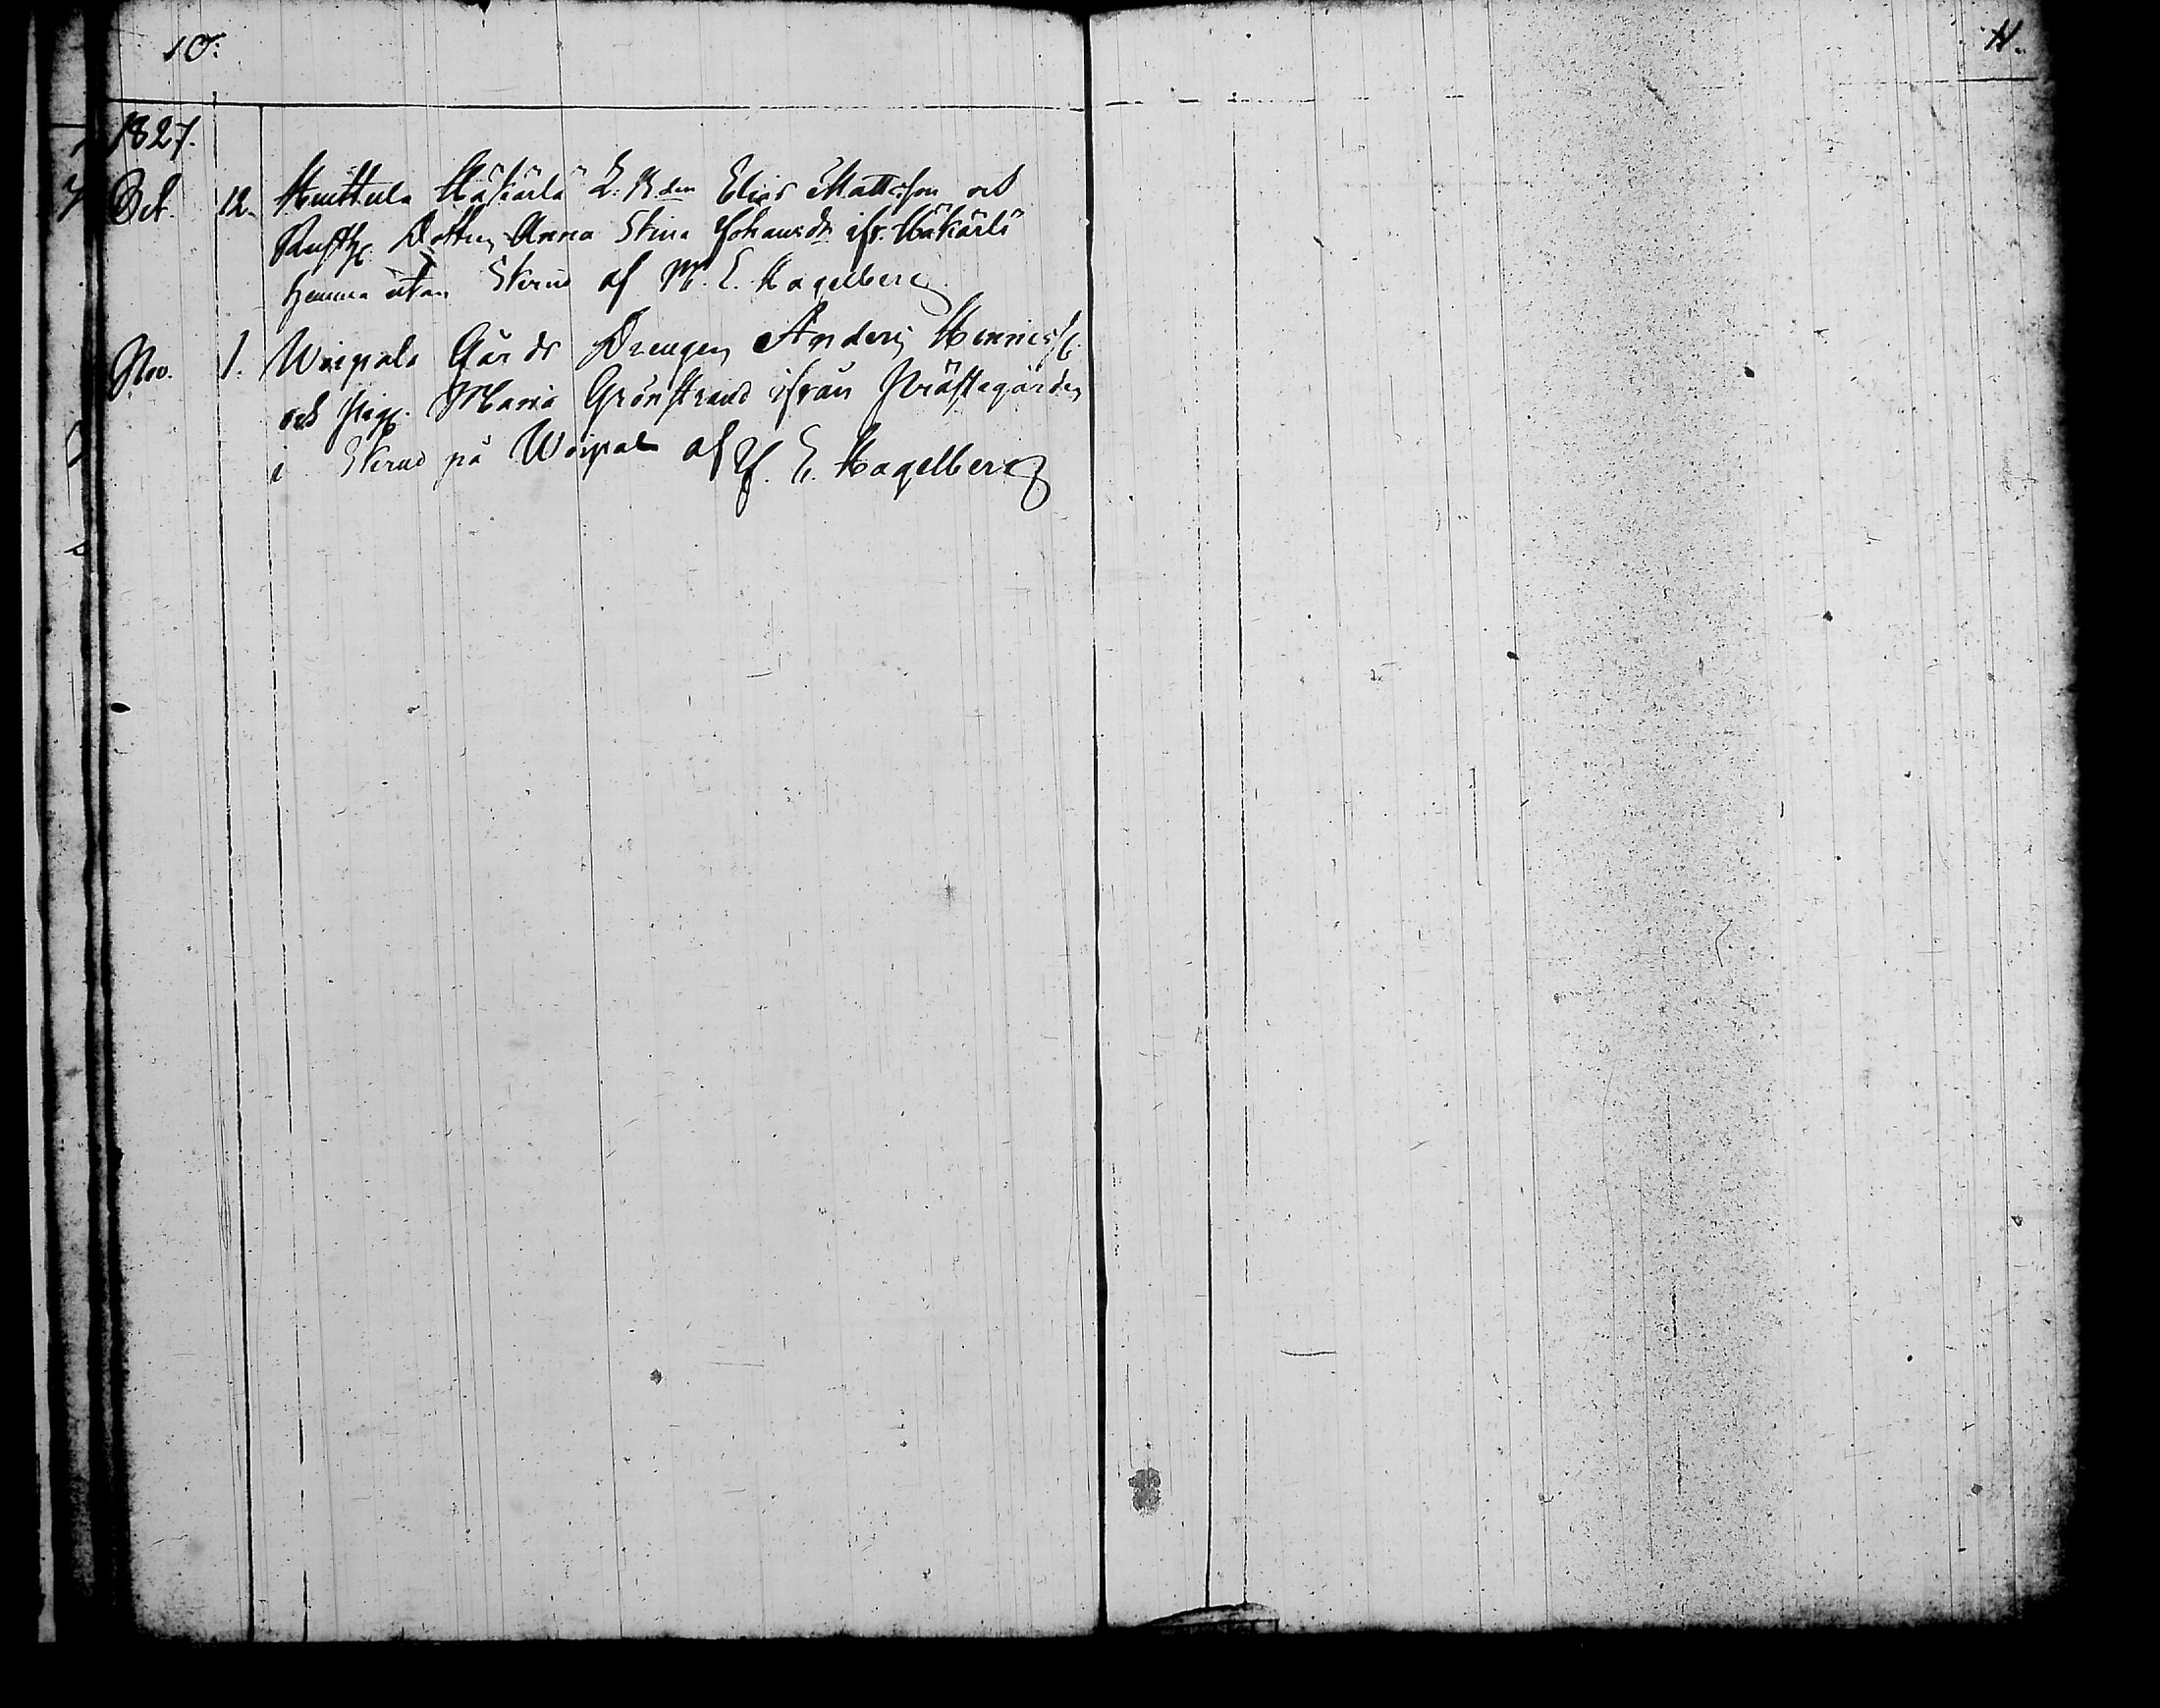 10.
11.
1827.
Oct. 12. Huittula Häkärlä Elias Mattsson och
Rusth. Dottren Anna Stina Johansdr ifr. Häkärlä
hemma utan Skrud af M. E. Hagelberg
Nov. 1. Woipala Gårds Drengen Anders Henricss.
och Pig. Maria Grönstrand ifrån Prästegården
i Skrud på Woipala af M. E. Hagelberg